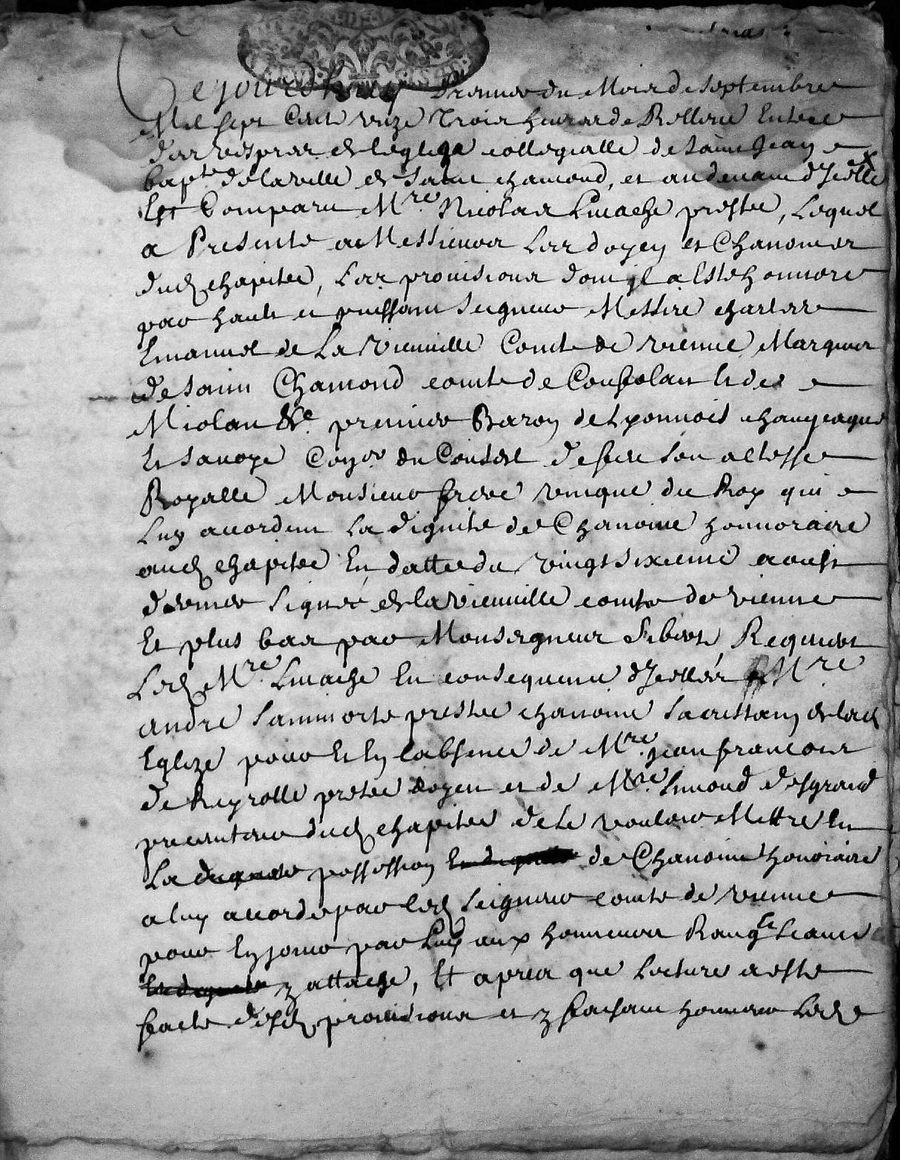 Cejourdhuy premier du Mois de septembre
Mil sept Cent unze Trois heures de Rellevé Entrée
des vespres de legleze collegialle de saint Jean
bapte. de la ville de saint chamond, et au devant d'Jcelle
Est Comparu Mre. Nicolas Limache prestre, Lequel
a Presenté a Messieurs Les doyen et Chanoines
dud chapitre, Les provisions dont jl a Esté honnoré
par hault et puissant seigneur Messire charles
Emanuel de La vieuville Comte de vienne Marquis
de saint Chamond comte de Confolant et de
Miolan &c. premier Baron de Lyonnois
Et savoye du Conseil de feu son altesse
Royalle Monsieur frere unique du Roy qui
Luy accordent La dignité de Chanoine honnoraire
aud chapitre En datte du vingt sixieme aoust
dernier signeé de la vieuville comte de vienne
Et plus bas par Monseigneur Sibert, Requiert
Led Mre. Limache En consequence d'Jcelles Mre
andré prestre chanoine sacristain de lad
Eglize pour Et En labsence de Mre. jean francois
de Reyrolle prestre doyen et de Mre. Simond
precenteur dud chapitre de Le vouloir Mettre En
La possession de Chanoine honoraire
a luy accordé par led seigneur comte de vienne
pour En jouir par Luy aux honneurs Rang Seance
y attaché, Et apres que Lecture a esté
faicte desd provisions et y faisant honneur Led